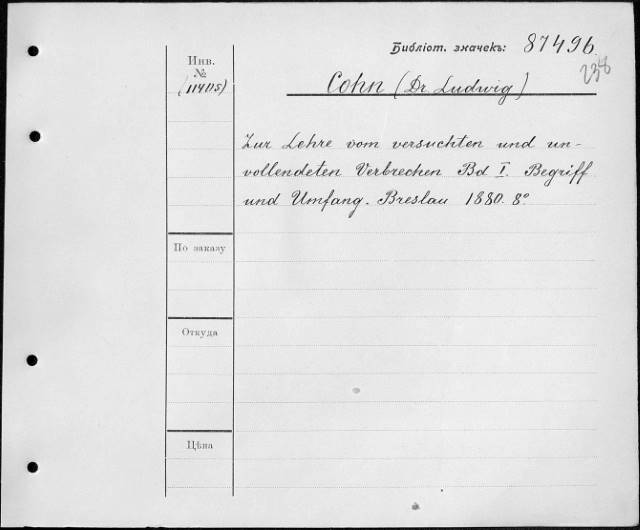 Библіот. значекъ: 87496
238
Инв.
№
(114115)
Cohn (Dr. Ludwig)
Zur Lehre vom versuchten und un-
vollendeten Verbrechen Bd I. Begriff
und Umfang. Breslau 1880. 8º
По заказу
Откуда
Цѣна